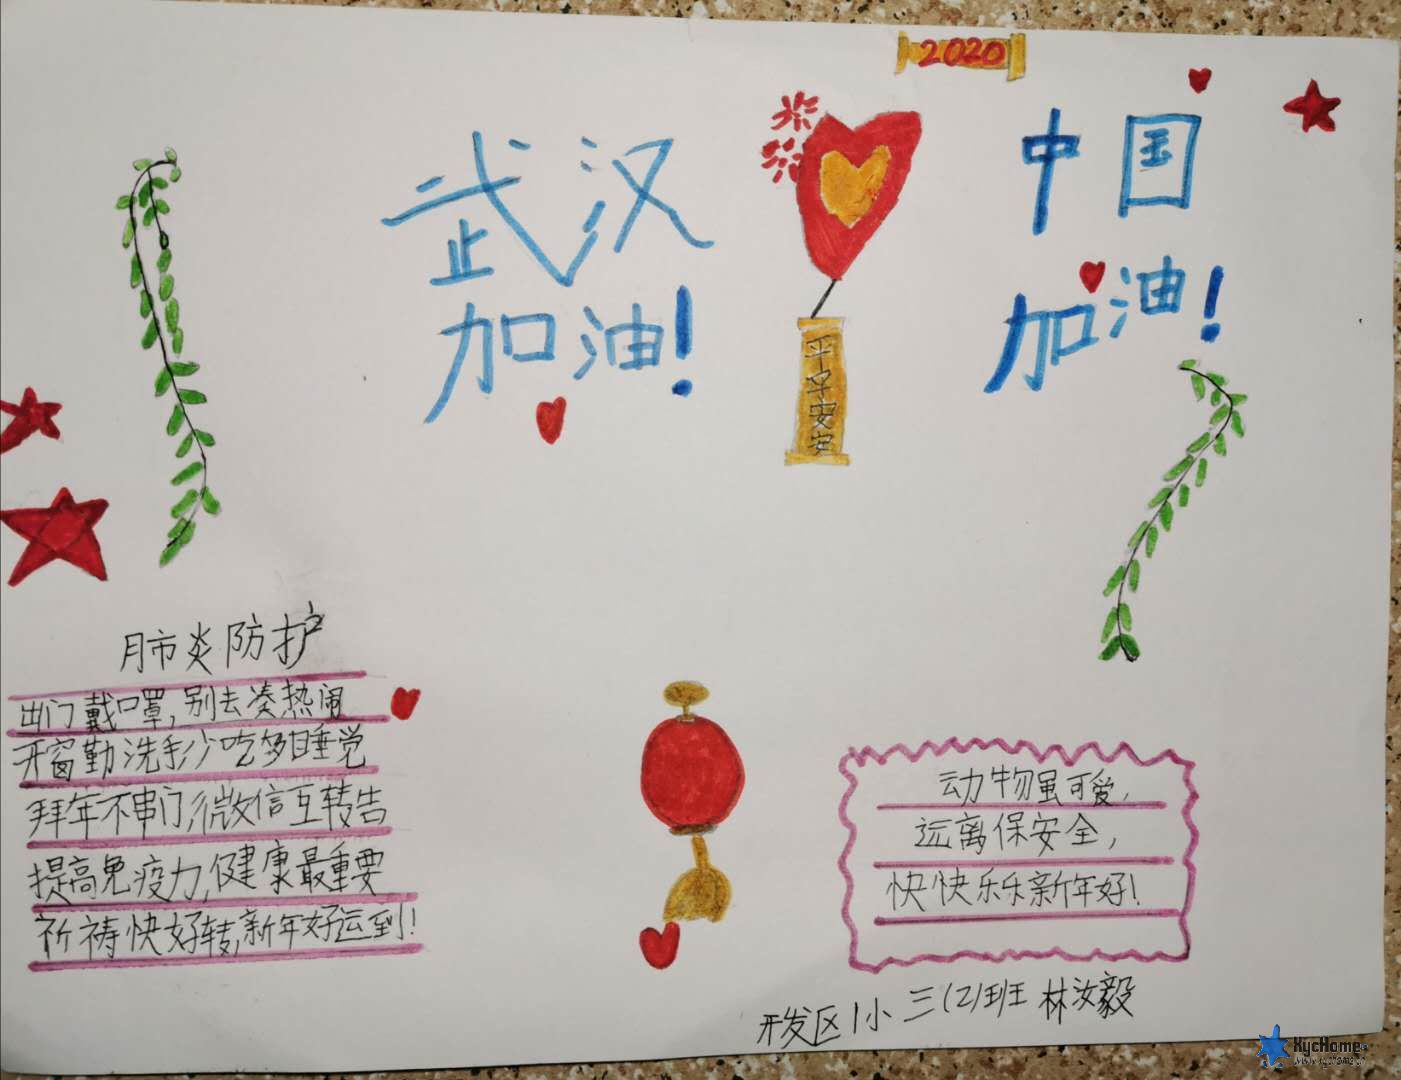 2020
武汉
加油!
中国
加油!
平平安安
肺炎防护
出门戴口罩,别去凑热闹
开窗勤洗手少吃多睡觉
拜年不串门,微信互转告
提高免疫力,健康最重要
祈祷快好转,新年好运到!
动物虽可爱,
远离保安全,
快快乐乐新年好!
开发区1小 三(2)班 林汝毅
XycHome